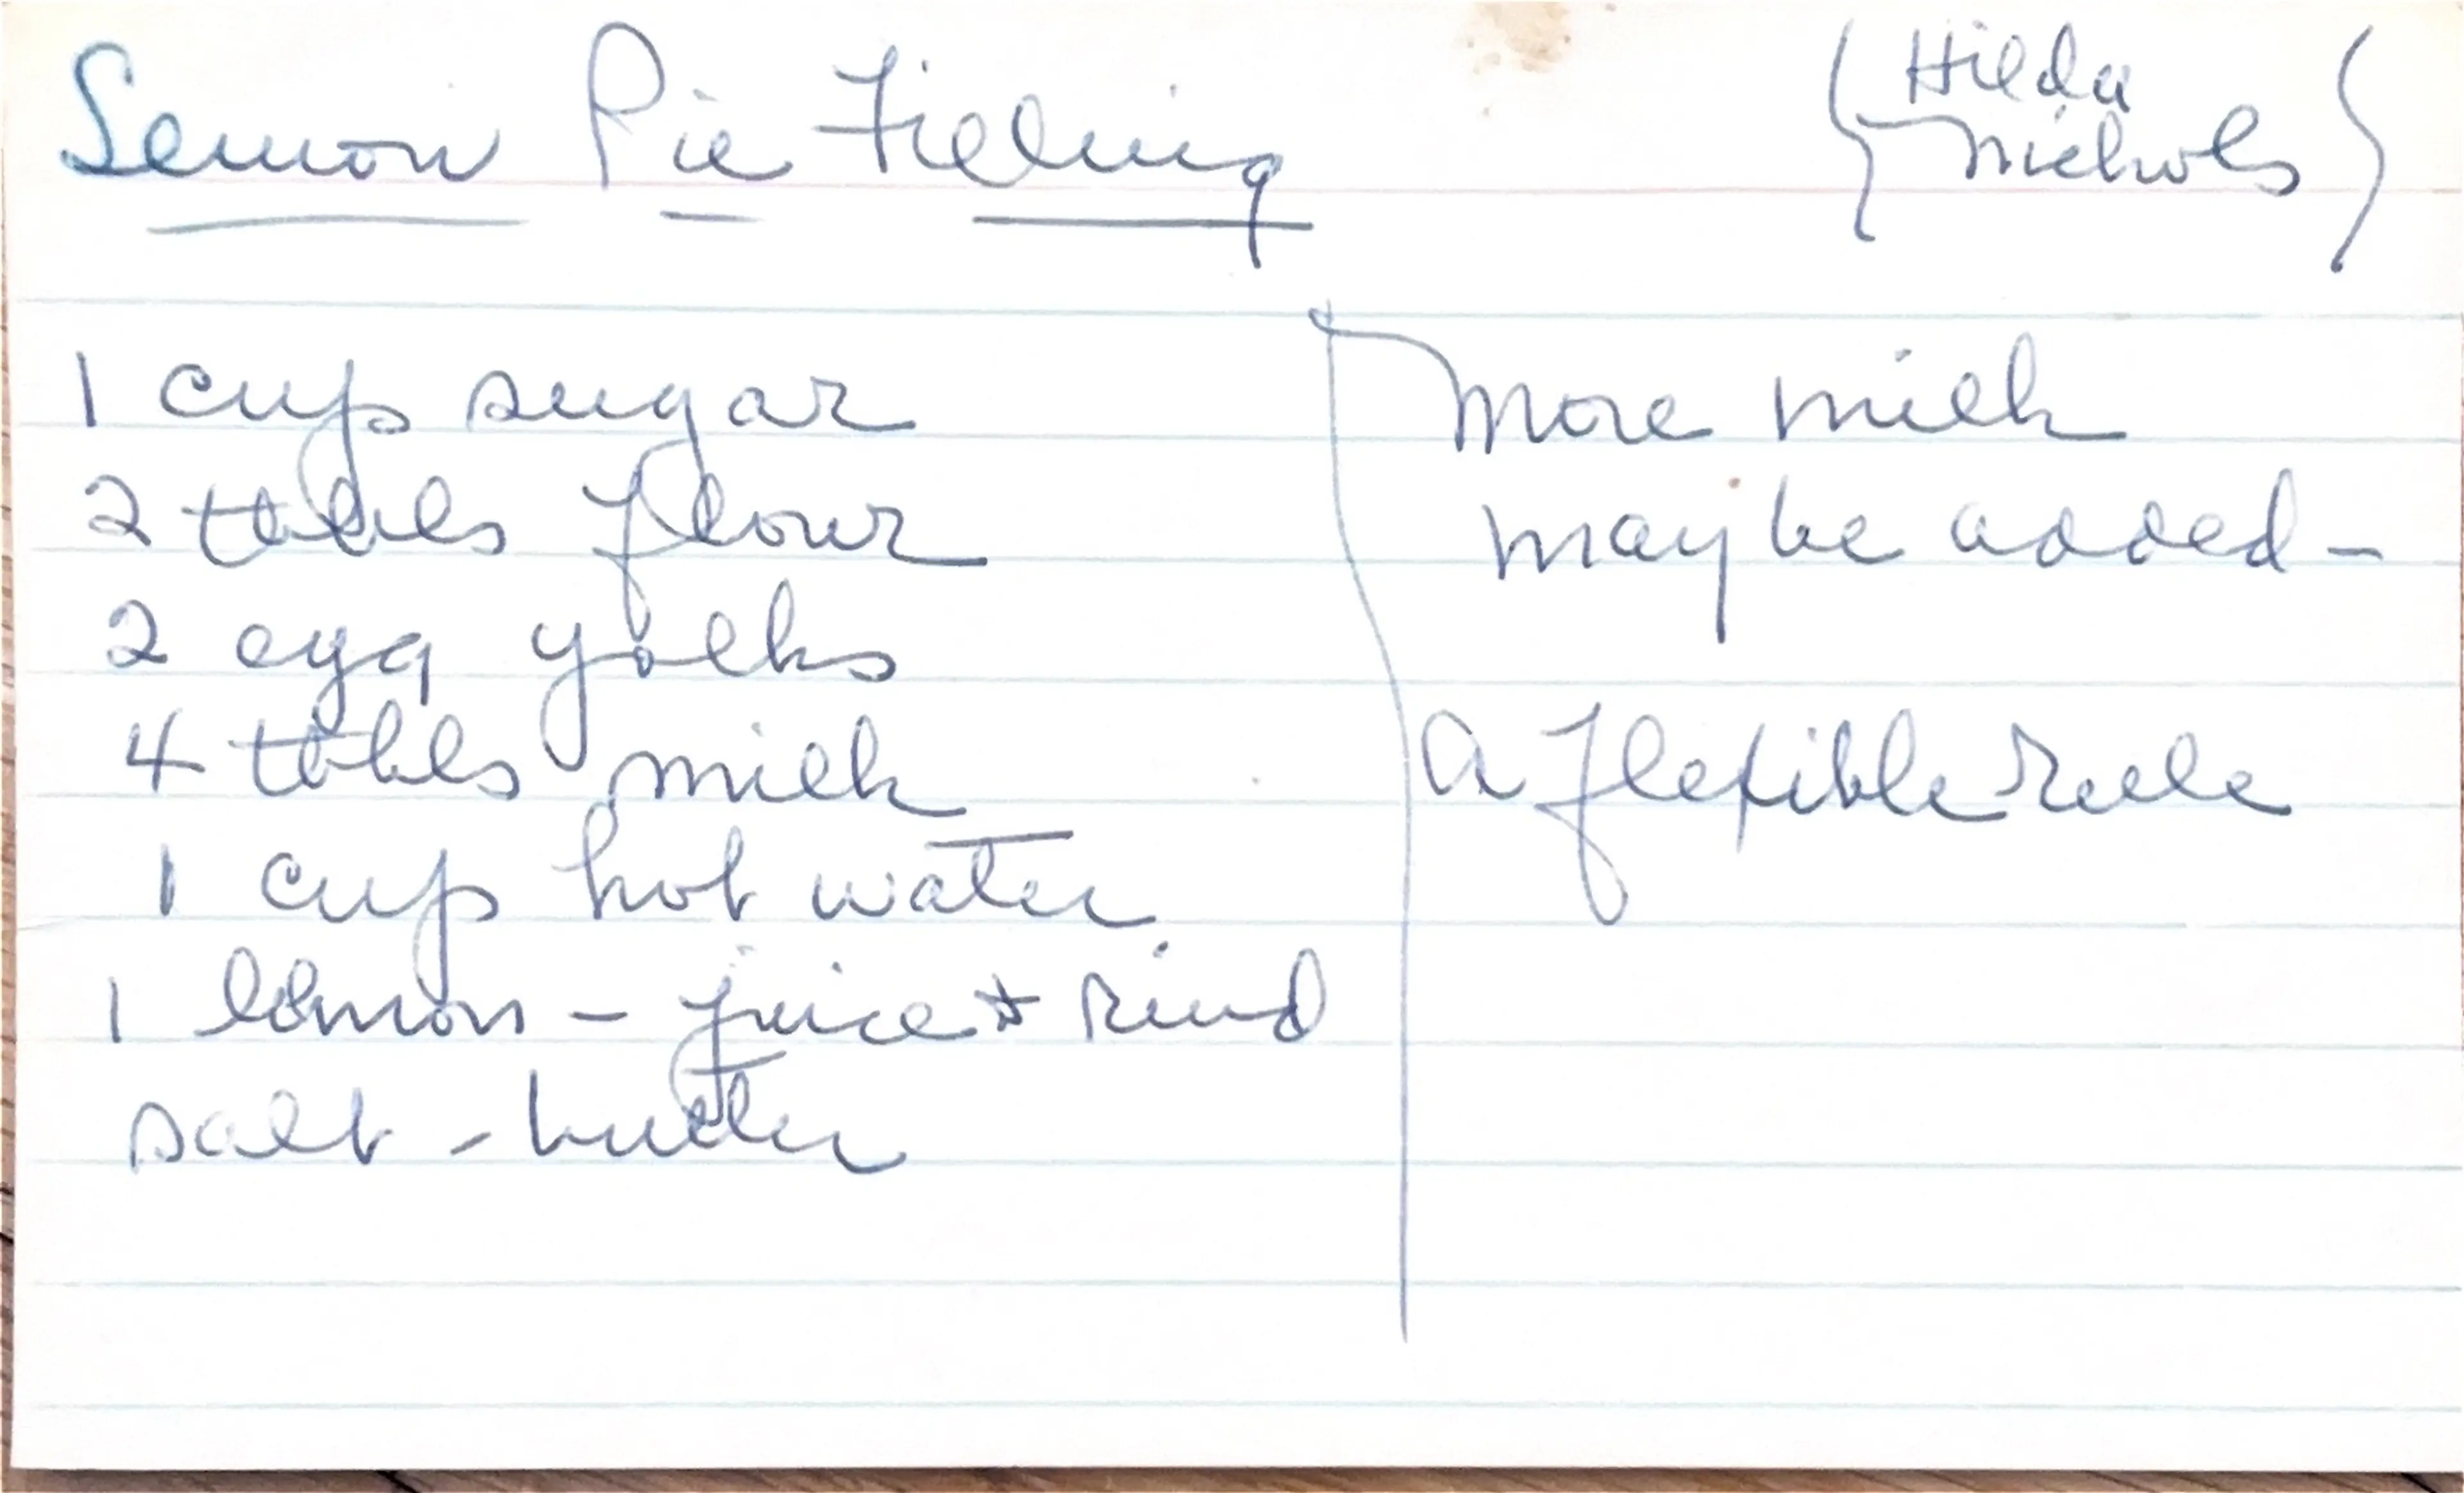 Lemon Pie Filling
Hilda
Nichols
1 cup sugar
2 tbbls flour
2 egg yolks
4 tbbls milk
1 cup hot water
1 lemon - juice + rind
salt - butter
More milk
may be added -
A flexible rule